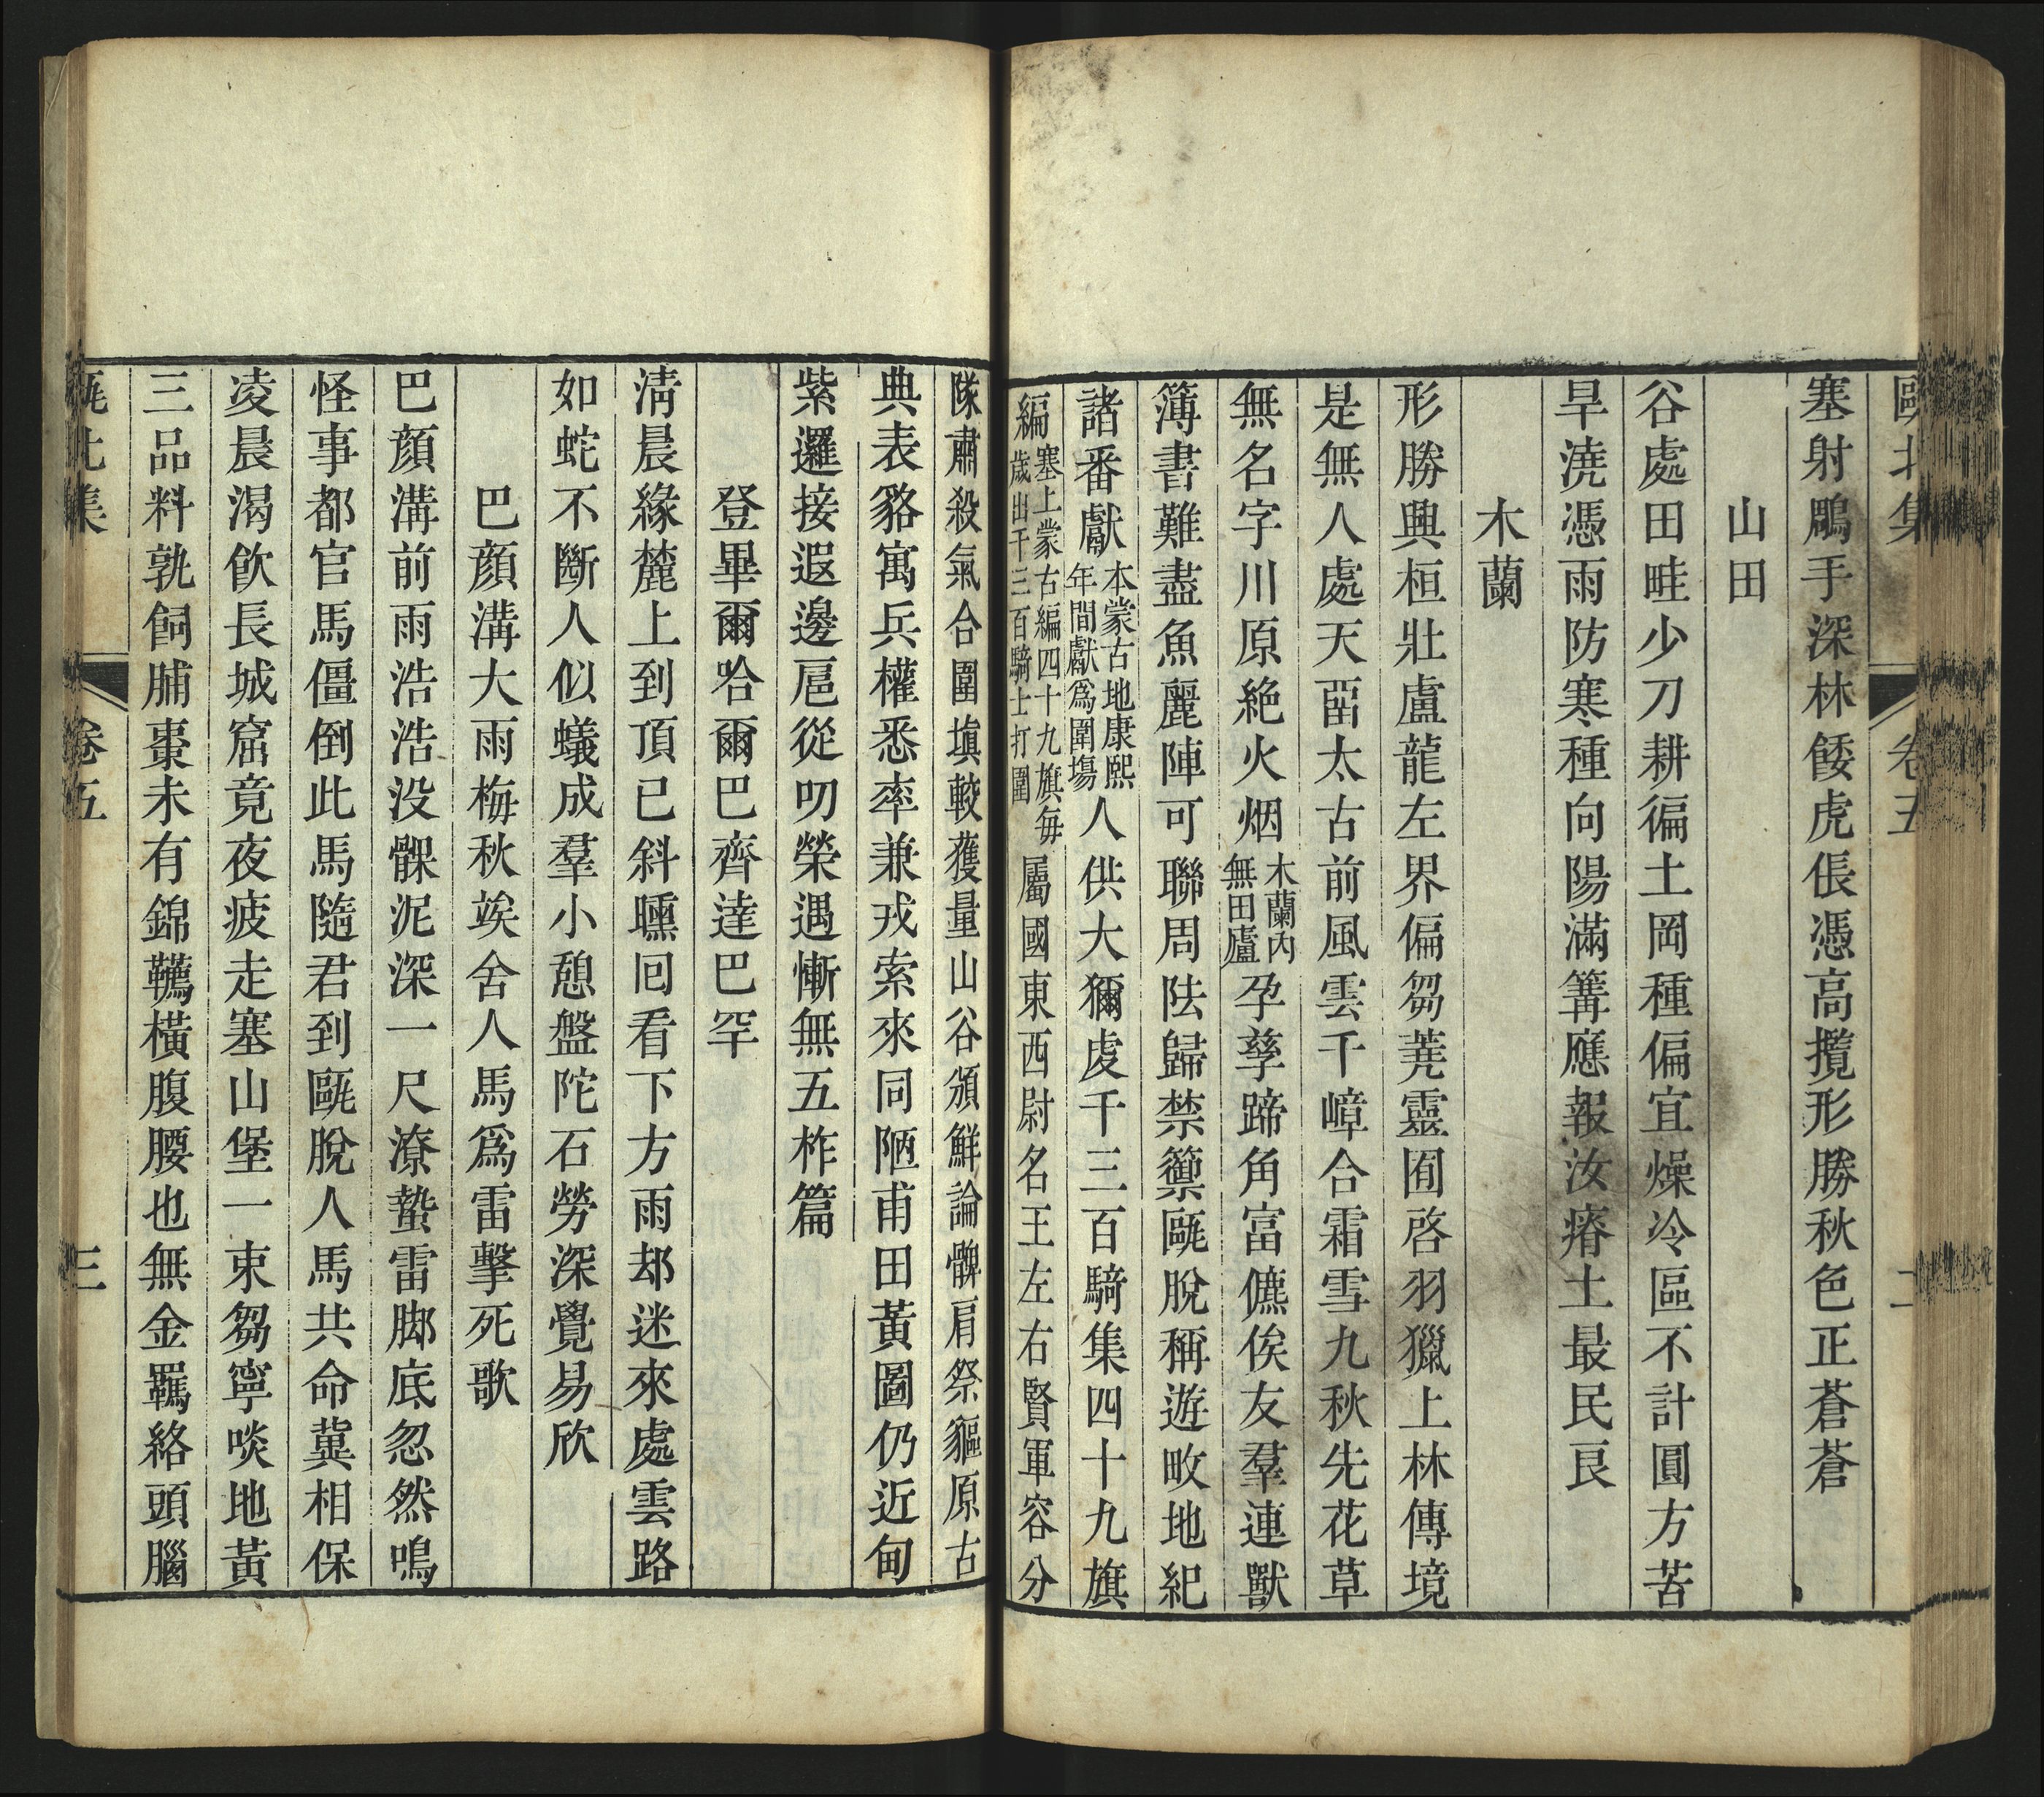 甌北集 卷五 二
塞射鵰手深林餧虎倀憑高攬形勝秋色正蒼蒼
山田
谷處田畦少刀耕徧土岡種偏宜燥冷區不計圓方苦
旱澆憑雨防寒種向陽滿篝應報汝瘠土最民良
木蘭
形勝興桓壯盧龍左界偏芻蕘靈囿啓羽獵上林傳境
是無人處天畱太古前風雲千嶂合霜雪九秋先花草
無名字川原絶火烟木蘭內無田廬孕孳蹄角富儦俟友羣連獸
簿書難盡魚麗陣可聯周阹歸禁籞甌脫稱遊畋地紀
諸番獻本蒙古地康熙年間獻爲圍塲人供大獮虔千三百騎集四十九旗
編塞上蒙古編四十九旗每歲出千三百騎士打圍屬國東西尉名王左右賢軍容分
隊肅殺氣合圍塡較獲量山谷頒鮮論髀肩祭貙原古
典表貉寓兵權悉率兼戎索來同陋甫田黃圖仍近甸
紫邏接遐邊扈從叨榮遇慚無五柞篇
登畢爾哈爾巴齊達巴罕
淸晨緣麓上到頂已斜曛囘看下方雨却迷來處雲路
如蛇不斷人似蟻成羣小憩盤陀石勞深覺易欣
巴顏溝大雨梅秋竢舍人馬爲雷擊死歌
巴顏溝前雨浩浩没髁泥深一尺潦蟄雷脚底忽然鳴
怪事都官馬僵倒此馬隨君到甌脫人馬共命冀相保
凌晨渴飮長城窟竟夜疲走塞山堡一束芻寧啖地黃
三品料孰飼脯棗未有錦韉橫腹腰也無金羈絡頭腦
甌北集 卷五 三